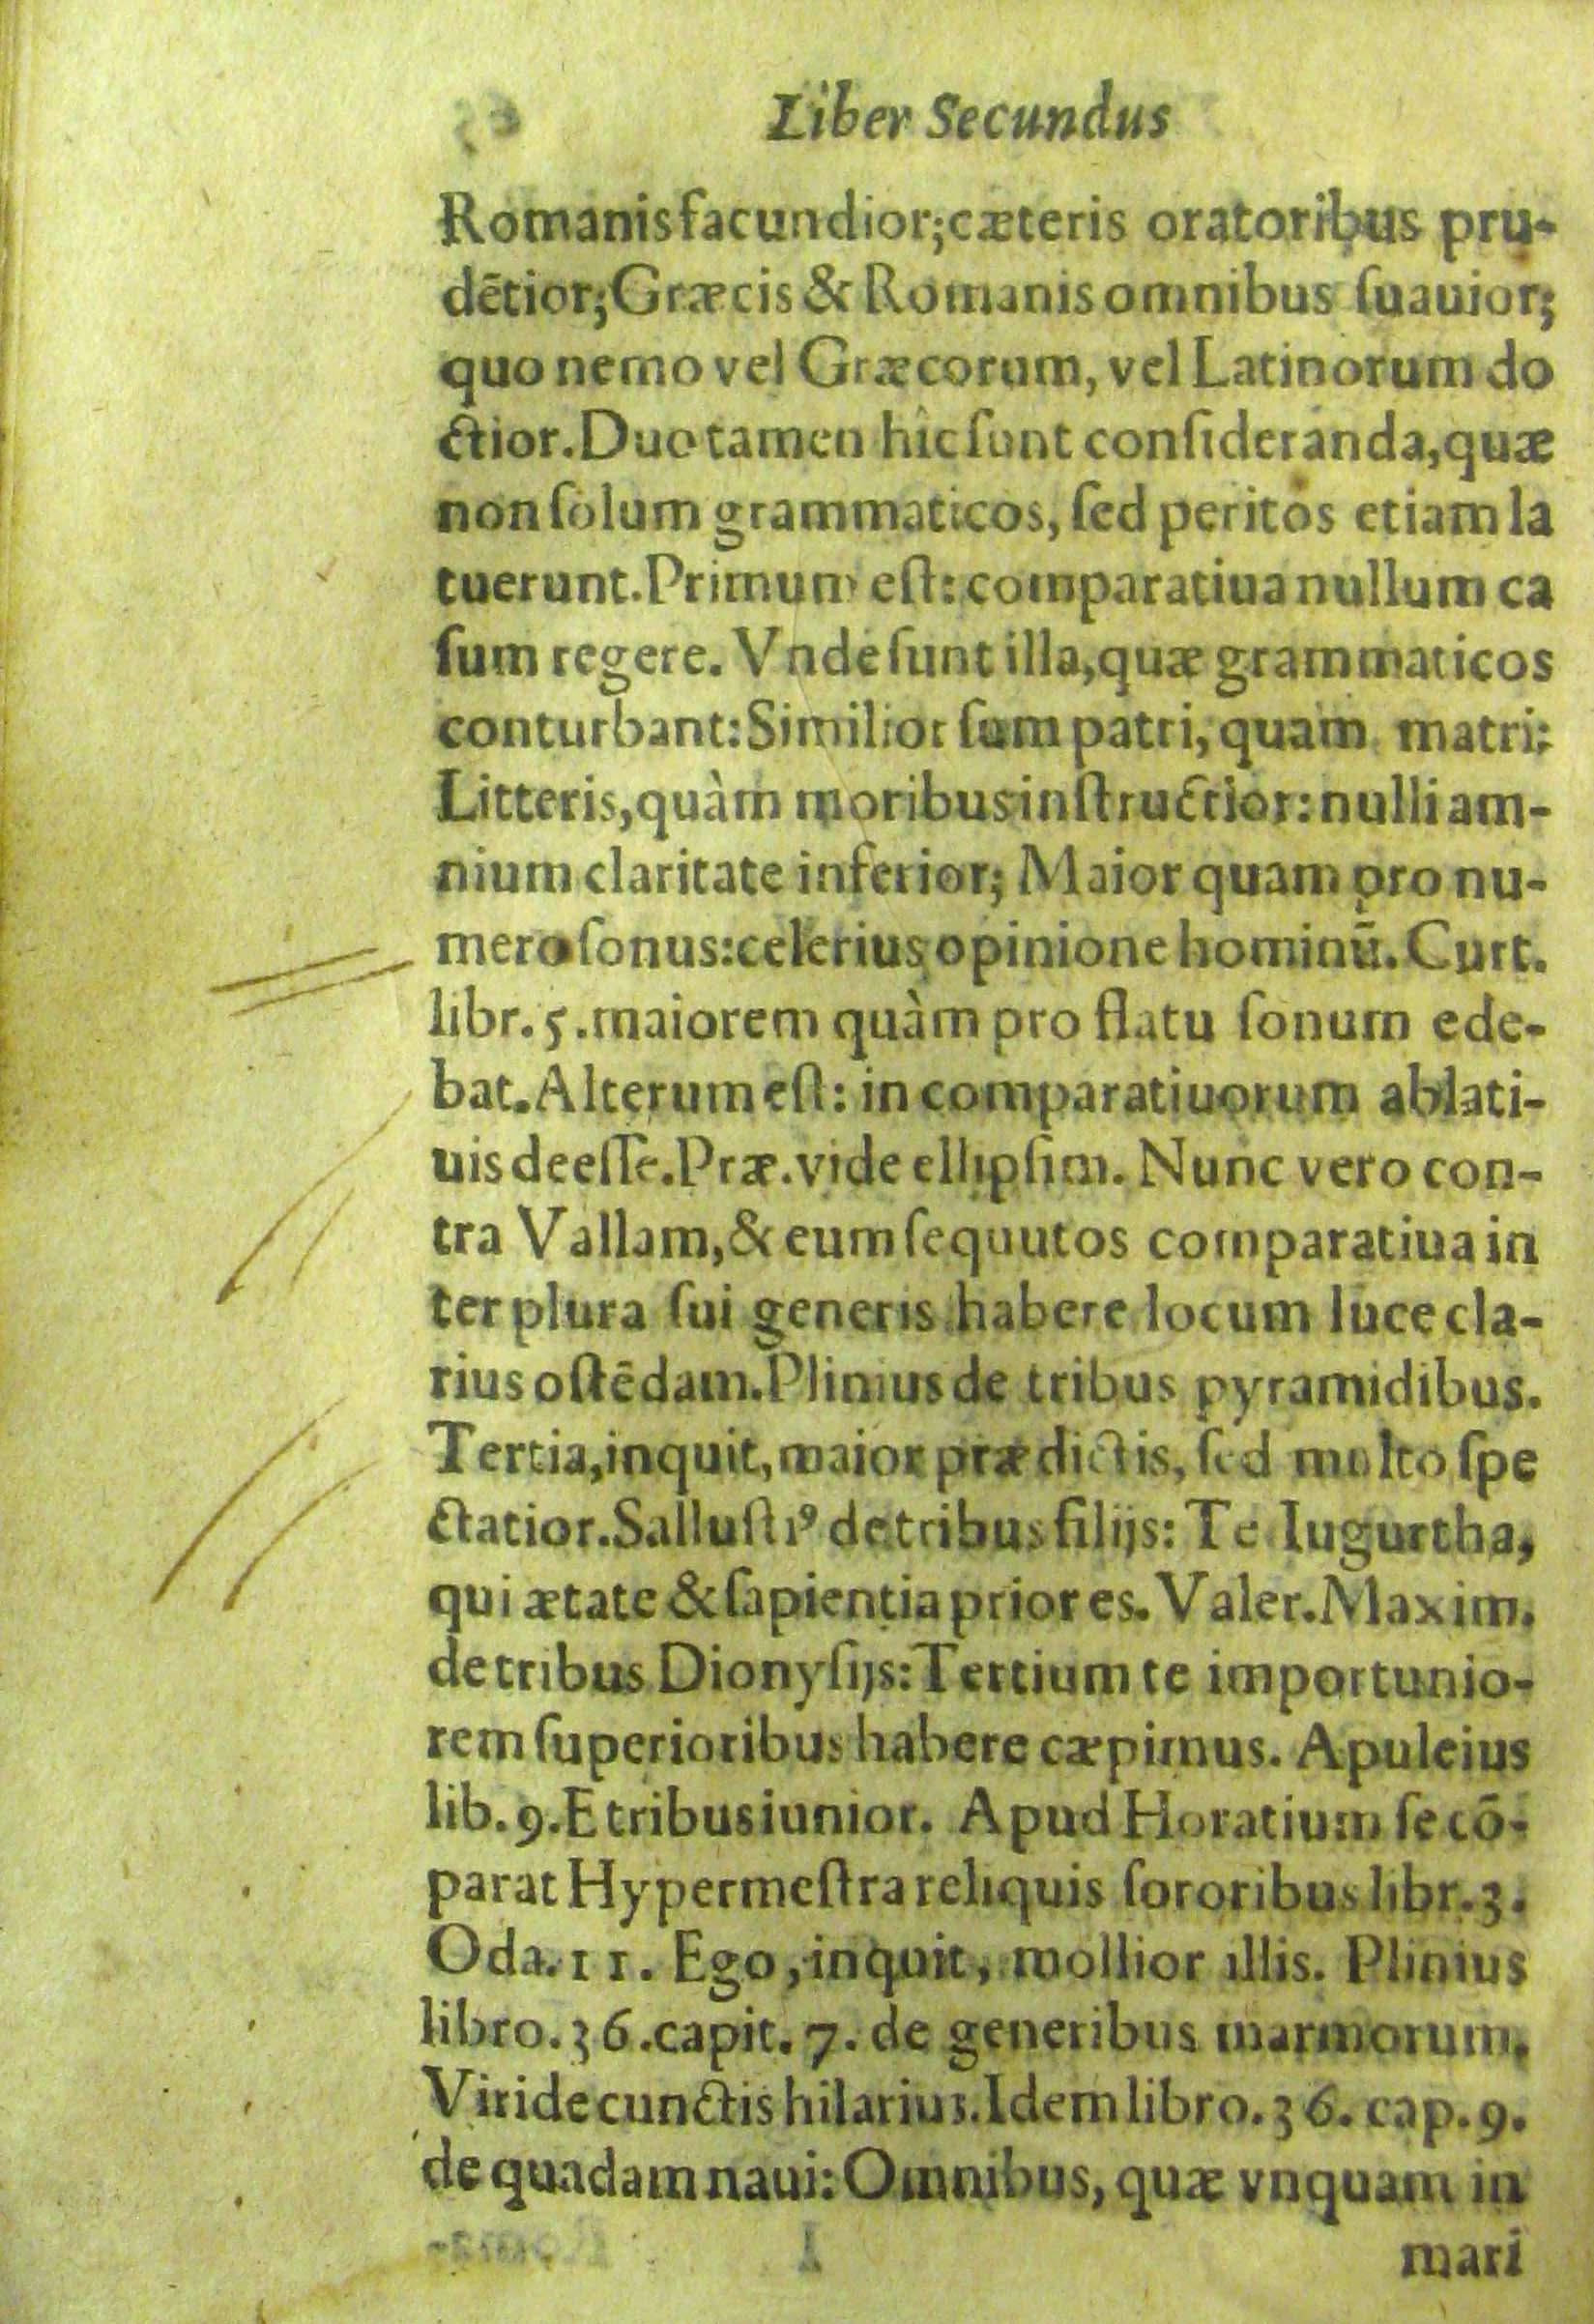 Liber Secundus
Romanis facundior; cæteris oratoribus pru-
dẽtior; Græcis & Romanis omnibus ſuauior;
quo nemo vel Græcorum, vel Latinorum do
ctior. Duo tamen hic ſunt conſideranda, quæ
non ſolum grammaticos, ſed peritos etiam la
tuerunt. Primum eſt: comparatiua nullum ca
ſum regere. Vnde ſunt illa, quæ grammaticos
conturbant: Similior ſum patri, quam matri:
Litteris, quàm moribus inſtructior: nulli am-
nium claritate inferior; Maior quam pro nu-
mero ſonus: celerius opinione hominũ. Curt.
libr. 5. maiorem quàm pro flatu ſonum ede-
bat. Alterum eſt: in comparatiuorum ablati-
uis deeſſe. Præ. vide ellipſim. Nunc vero con-
tra Vallam, & eum ſequutos comparatiua in
ter plura ſui generis habere locum luce cla-
rius oſtẽdam. Plinius de tribus pyramidibus.
Tertia, inquit, maior prædictis, ſed multo ſpe
ctatior. Salluſtiꝰ de tribus filijs: Te Iugurtha,
qui ætate & ſapientia prior es. Valer. Maxim.
de tribus Dionyſijs: Tertium te importunio-
rem ſuperioribus habere cæpimus. Apuleius
lib. 9. E tribus iunior. Apud Horatium ſe cõ-
parat Hypermeſtra reliquis ſororibus libr. 3.
Oda. 11. Ego, inquit, mollior illis. Plinius
libro. 36. capit. 7. de generibus marmorum.
Viride cunctis hilarius. Idem libro. 36. cap. 9.
de quadam naui: Omnibus, quæ vnquam in
mari